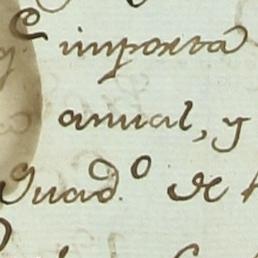 importa
anual, y
Quad.º de